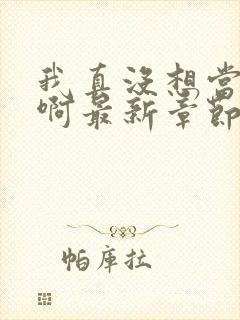 我真没想当
啊最新章节
帕库拉